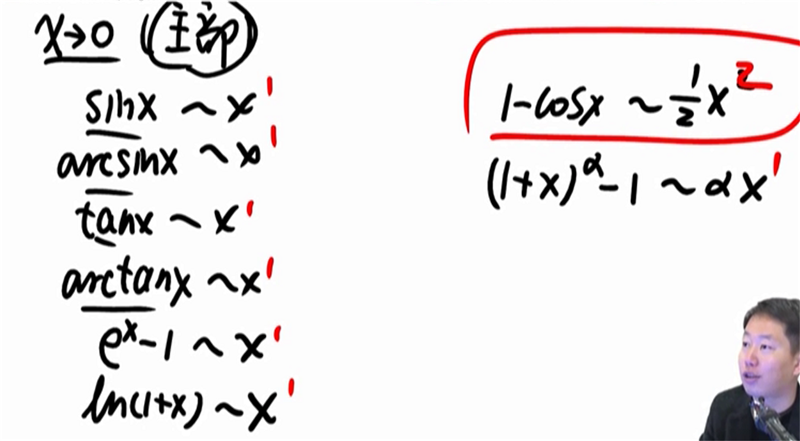 x→0 (主部)
sinx ~ x¹
arcsinx ~ x¹
tanx ~ x¹
arctanx ~ x¹
eˣ-1 ~ x¹
ln(1+x) ~ x¹
1-cosx ~ ½x²
(1+x)^α-1 ~ αx¹